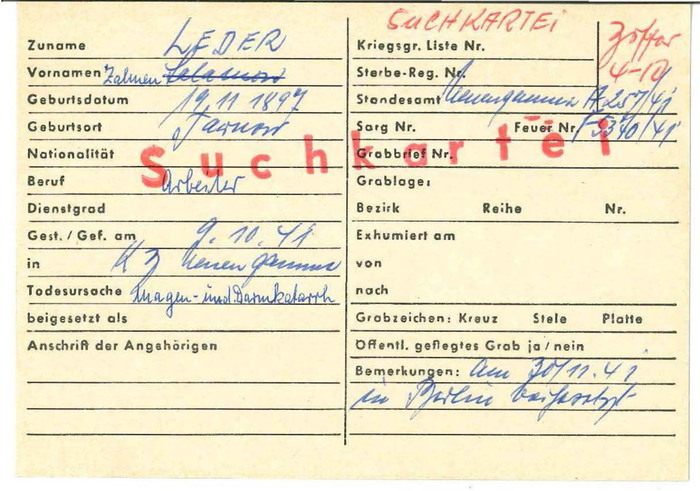 SUCHKARTEI
Zuname LEDER
Vornamen Zalmen Salamon
Geburtsdatum 19.11 1897
Geburtsort Tarnow
Nationalität
Beruf Arbeiter
Dienstgrad
Gest. / Gef. am 9.10.41
in KZ Neuengamme
Todesursache Magen- und Darmkatarrh
beigesetzt als
Anschrift der Angehörigen
Suchkartei
Kriegsgr. Liste Nr.
4-12
Sterbe-Reg. Nr.
Standesamt Neuengamme A 257/41
Sarg Nr. Feuer Nr. 5340/41
Grabbrief Nr.
Grablage:
Bezirk Reihe Nr.
Exhumiert am
von
nach
Grabzeichen: Kreuz Stele Platte
Öffentl. gepflegtes Grab ja / nein
Bemerkungen: am 30/11.41
in Berlin beigesetzt